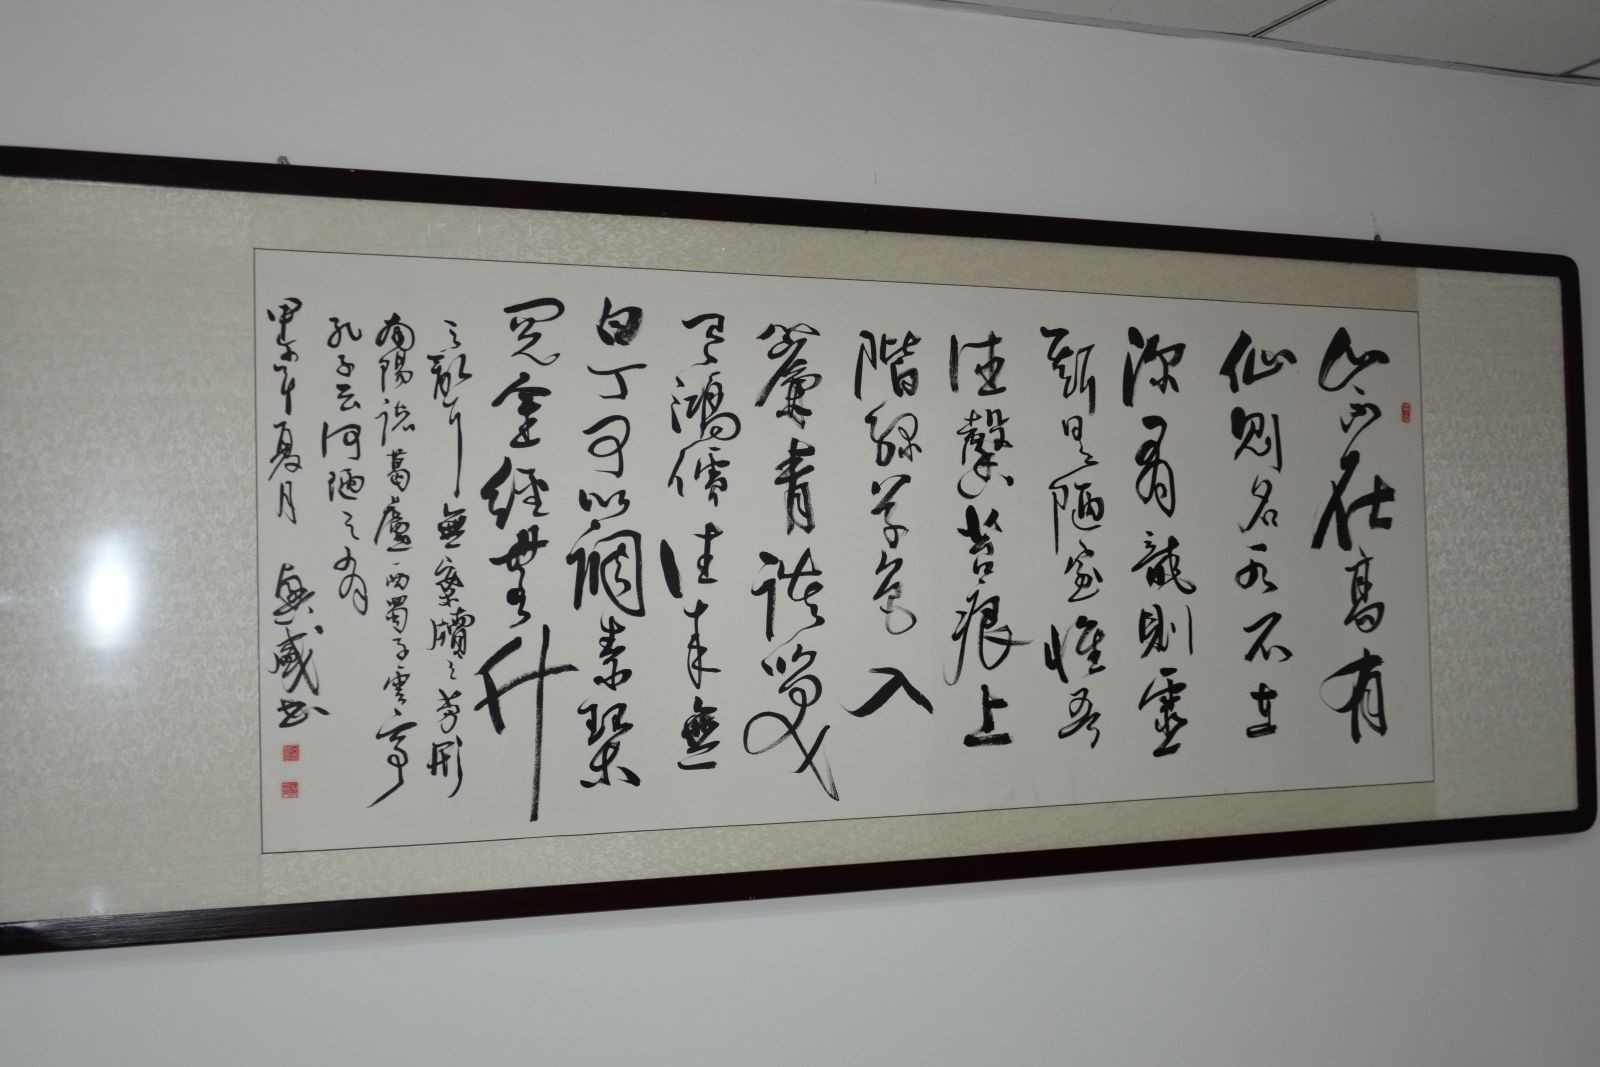 山不在高有
仙則名水不在
深有龍則靈
斯是陋室惟吾
德馨苔痕上
階綠草色入
簾青談笑
有鴻儒往來無
白丁可以調素琴
閱金經無絲竹
之亂耳無案牘之勞形
南陽諸葛廬西蜀子雲亭
孔子云何陋之有
甲午年夏月 书